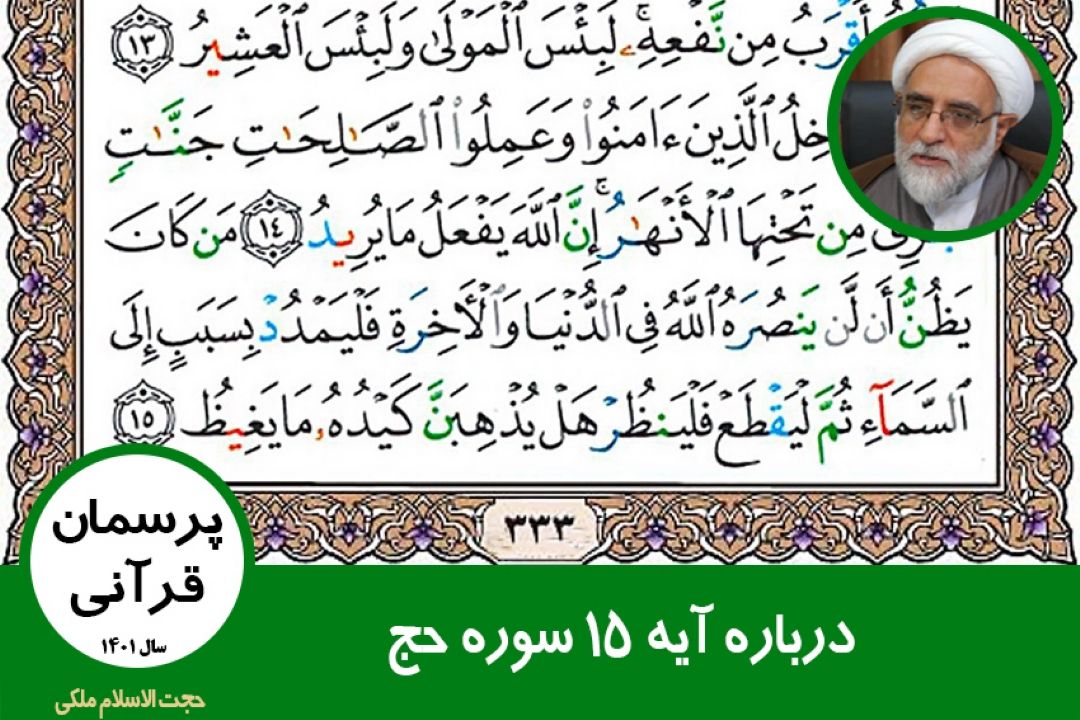 أَقْرَبُ مِن نَّفْعِهِۦۚ لَبِئْسَ ٱلْمَوْلَىٰ وَلَبِئْسَ ٱلْعَشِيرُ ١٣
خِلُ ٱلَّذِينَ ءَامَنُوا۟ وَعَمِلُوا۟ ٱلصَّـٰلِحَـٰتِ جَنَّـٰتٍ
مِن تَحْتِهَا ٱلْأَنْهَـٰرُۚ إِنَّ ٱللَّهَ يَفْعَلُ مَا يُرِيدُ ١٤ مَن كَانَ
يَظُنُّ أَن لَّن يَنصُرَهُ ٱللَّهُ فِى ٱلدُّنْيَا وَٱلْأَخِرَةِ فَلْيَمْدُدْ بِسَبَبٍ إِلَى
ٱلسَّمَآءِ ثُمَّ لْيَقْطَعْ فَلْيَنظُرْ هَلْ يُذْهِبَنَّ كَيْدُهُۥ مَا يَغِيظُ ١٥
٣٣٣
پرسمان
قرآنی
سال ۱۴۰۱
درباره آیه ۱۵ سوره حج
حجت الاسلام ملکی